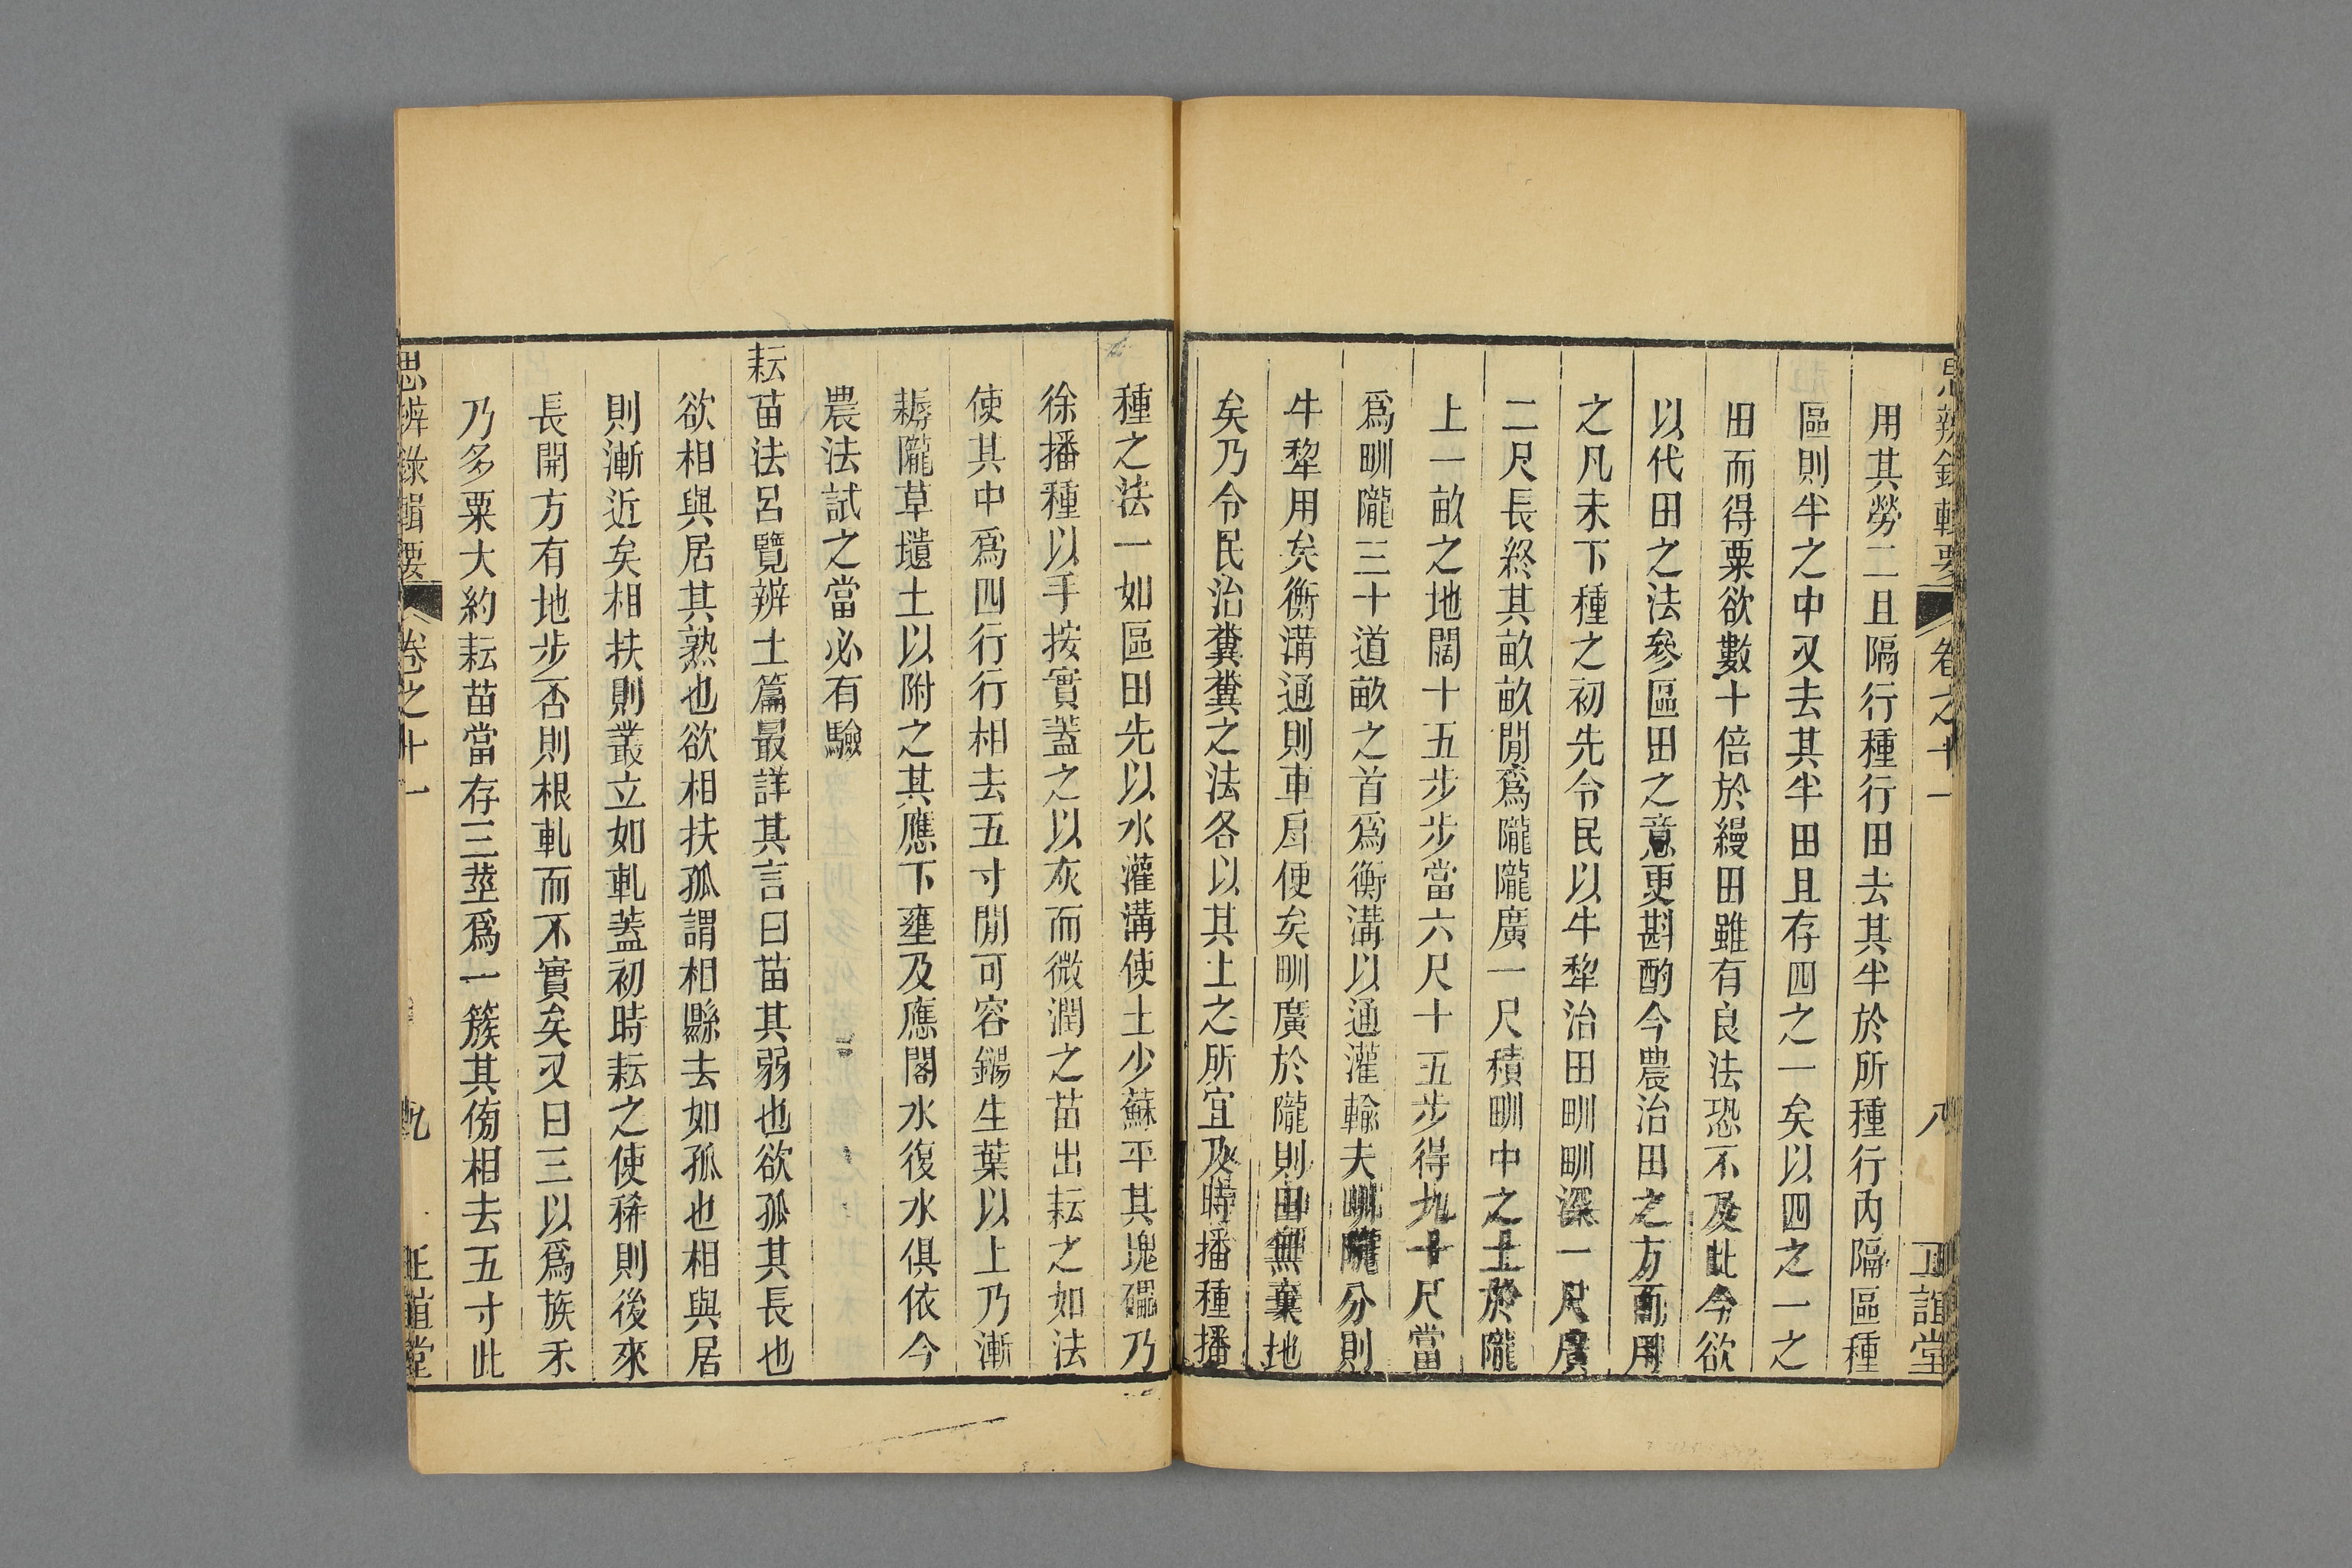 思辨錄輯要 卷之十一 八 正誼堂
用其勞二且隔行種行田去其半於所種行內隔區種
區則半之中又去其半田且存四之一矣以四之一之
田而得粟欲數十倍於縵田雖有良法恐不及此今欲
以代田之法參區田之意更斟酌今農治田之方而用
之凡未下種之初先令民以牛犂治田甽甽深一尺廣
二尺長終其畝畝閒爲隴隴廣一尺積甽中之土於隴
上一畝之地闊十五步步當六尺十五步得九十尺當
爲甽隴三十道畝之首爲衡溝以通灌輸夫甽隴分則
牛犂用矣衡溝通則車戽便矣甽廣於隴則田無棄地
矣乃令民治糞糞之法各以其土之所宜及時播種播
種之法一如區田先以水灌溝使土少蘇平其塊礧乃
徐播種以手按實蓋之以灰而微潤之苗出耘之如法
使其中爲四行行相去五寸閒可容鍚生葉以上乃漸
耨隴草壝土以附之其應下壅及應閣水復水俱依今
農法試之當必有驗
耘苗法呂覽辨土篇最詳其言曰苗其弱也欲孤其長也
欲相與居其熟也欲相扶孤謂相縣去如孤也相與居
則漸近矣相扶則叢立如軋蓋初時耘之使稀則後來
長開方有地步否則根軋而不實矣又曰三以爲族禾
乃多粟大約耘苗當存三莖爲一簇其傍相去五寸此
思辨錄輯要 卷之十一 九 正誼堂